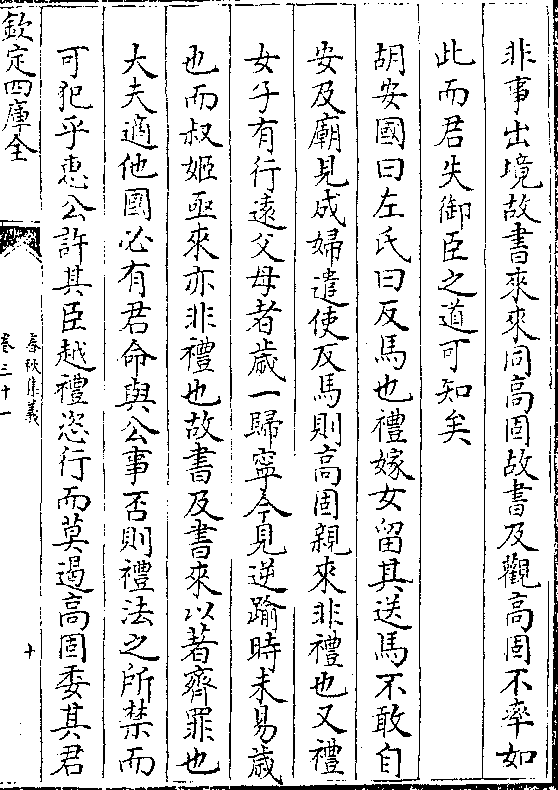 非事出境故書來來同高固故書及觀高固不率如
此而君失御臣之道可知矣
胡安國曰左氏曰反馬也禮嫁女留其送馬不敢自
安及廟見成婦遣使反馬則高固親來非禮也又禮
女子有行遠父母者歲一歸寧今見逆踰時未易歲
也而叔姬亟來亦非禮也故書及書來以著齊罪也
大夫適他國必有君命與公事否則禮法之所禁而
可犯乎惠公許其臣越禮恣行而莫遏高固委其君
欽定四庫全
春秋集義
卷三十一
十